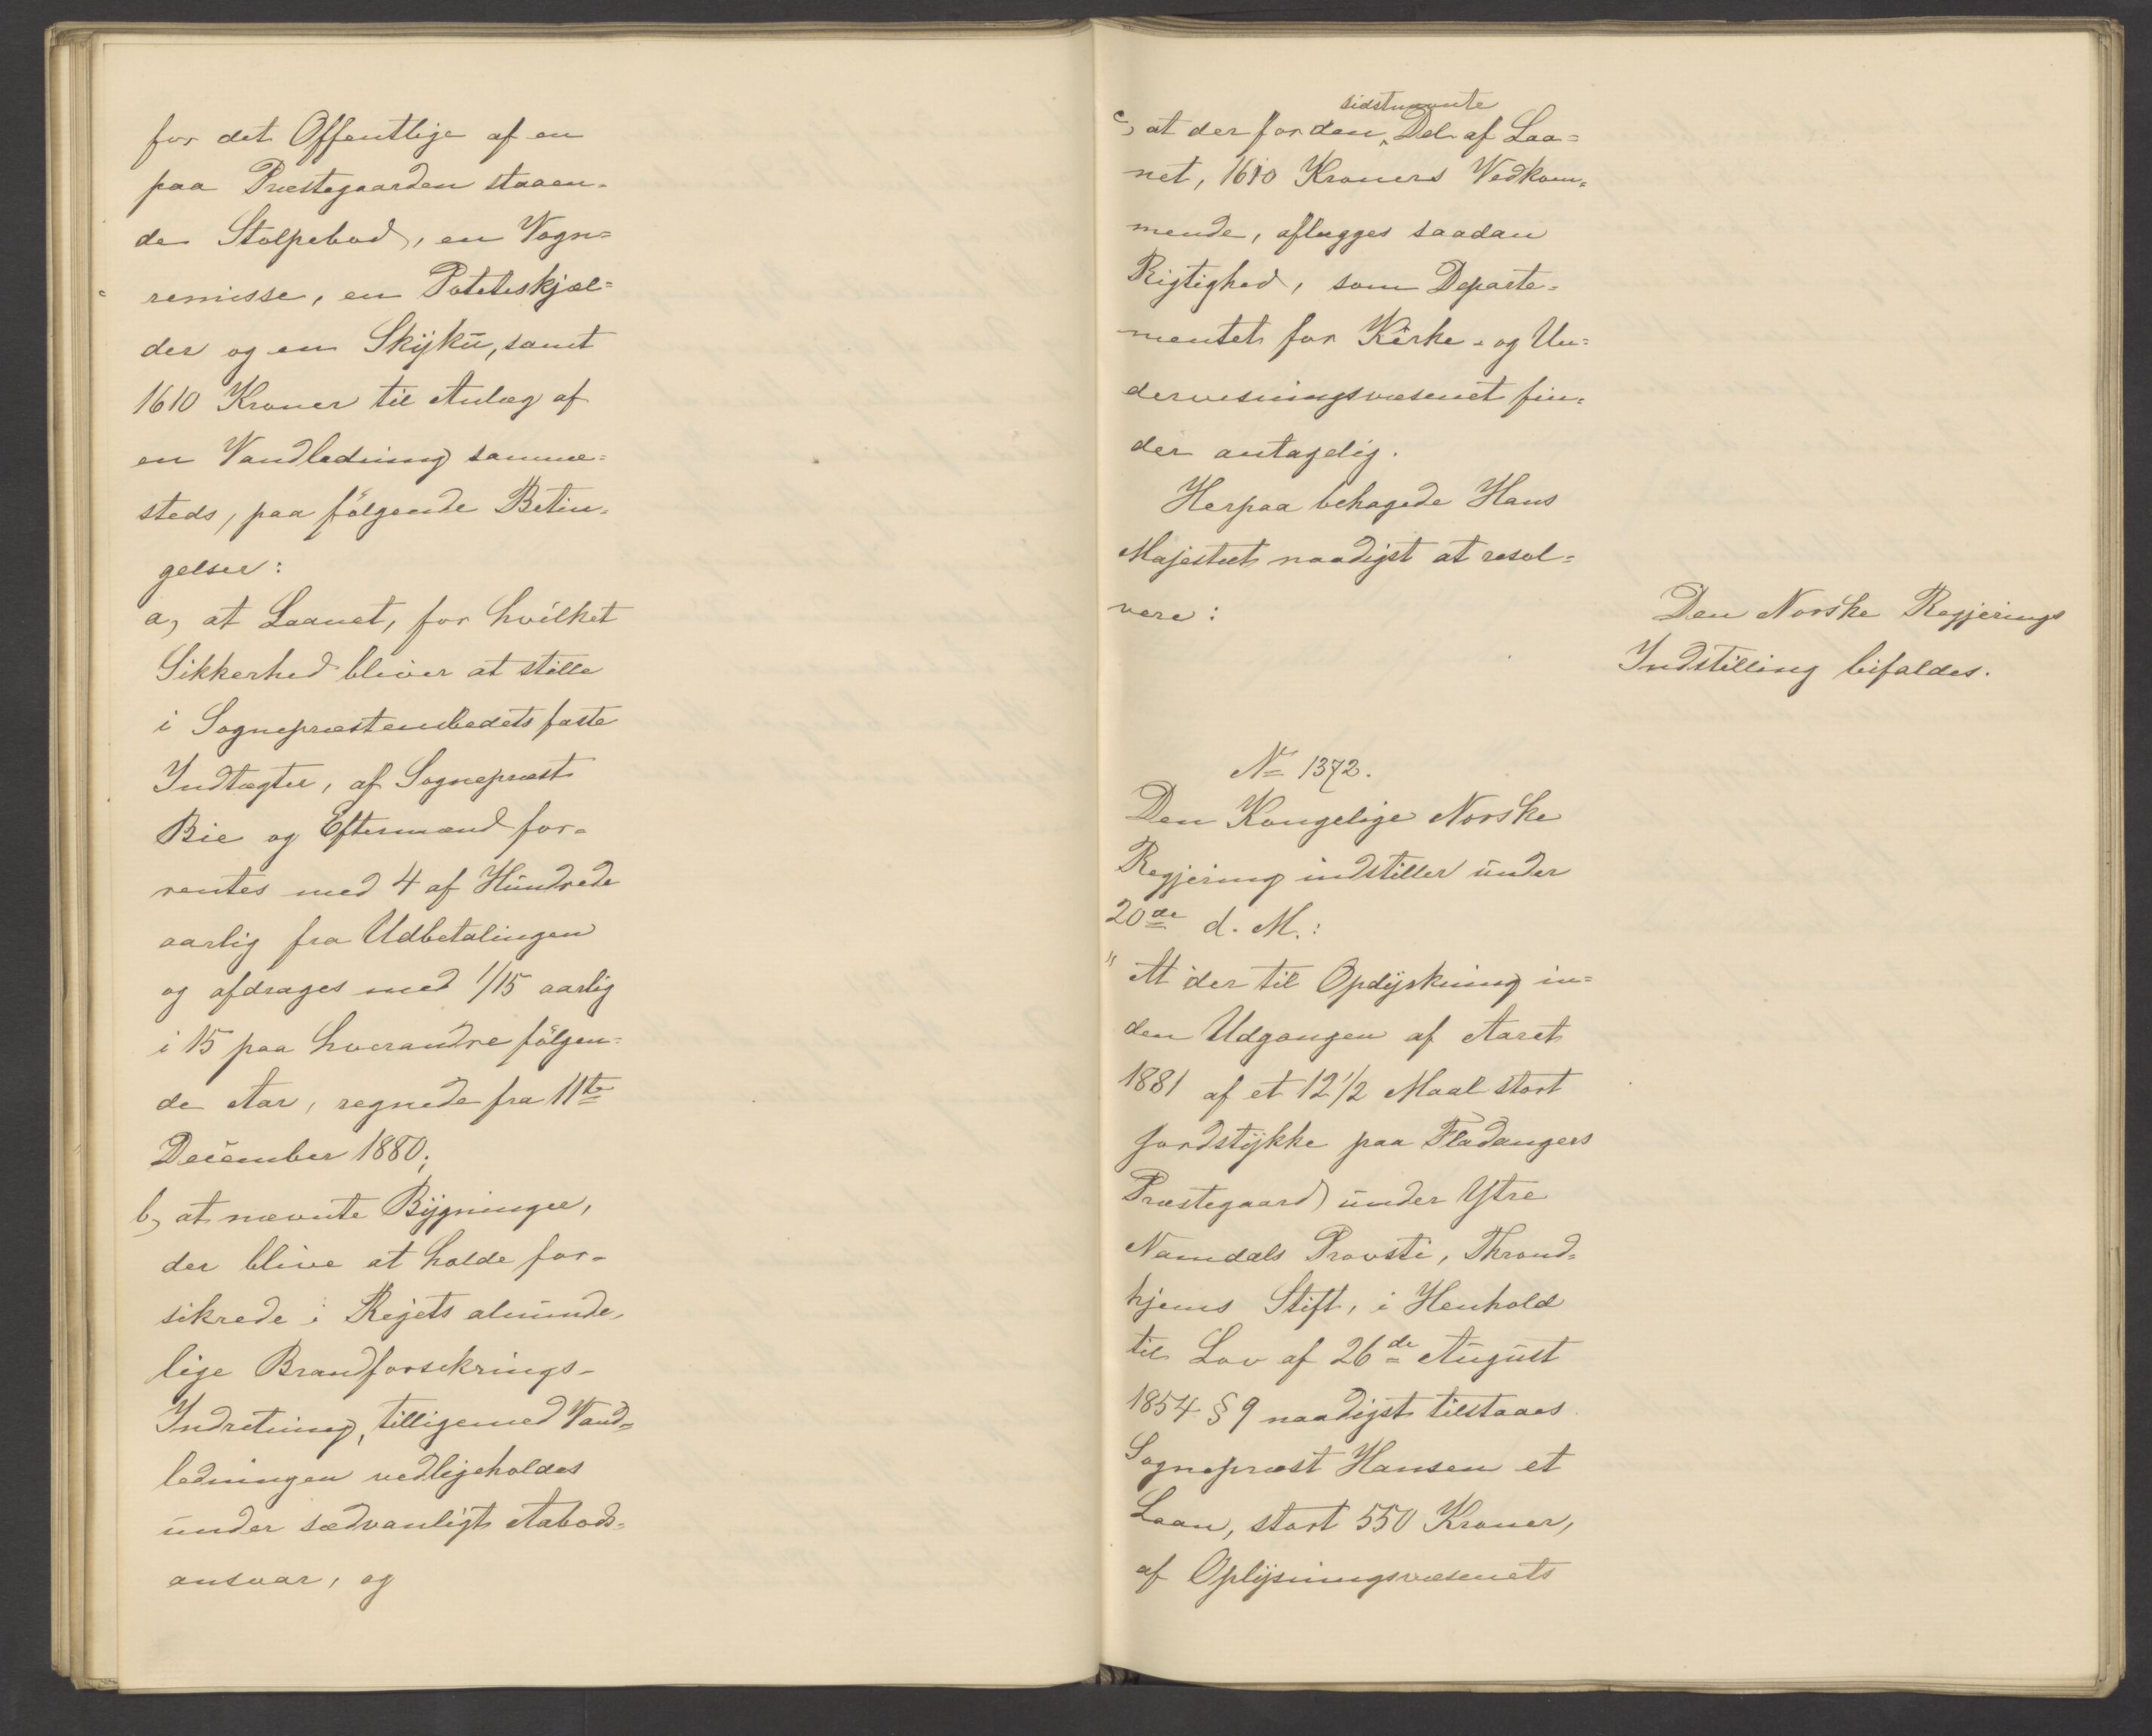 for det Offentlige af en
paa Præstegaarden staaen-
de Stolpebod, en Vogn=
remisse, en Poteteskjæl=
der og en Skÿku, samt
1610 Kroner til Anlæg af
en Vandledning samme=
steds, paa følgende Betin-
gelser:
a, at Laanet, for hvilket
Sikkerhed bliver at stille
i Sognepræstembedets faste
Indtægter, af Sognepræst
Bie og Eftermænd for-
rentes med 4 af Hundrede
aarlig fra Udbetalingen
og afdrages med 1/15 aarlig
i 15 paa hverandre følgen=
de Aar, regnede fra 11te
December 1880;
b, at nævnte Bÿgninger,
der blive at holde for-
sikrede i Rigets alminde-
lige Brandforsikrings-
Indretning, tilligemed Vand=
ledningen vedligeholdes
under sædvanligt Aabods-
ansvar, og
c, at der for den sidstnævnte Del af Laa=
net, 1610 Kroners Vedkom=
mende, aflægges saadan
Rigtighed, som Departe-
mentet for Kirke- og Un=
dervisningsvæsenet fin=
der antagelig.
Herpaa behagede Hans
Majestæt naadigst at resol=
vere:
Den Norske Regjerings
Indstilling bifaldes.
No 1372.
Den Kongelige Norske
Regjering indstiller under
20de d. M.:
"At der til Opdÿrkning in=
den Udgangen af Aaret
1881 af et 12 1/2 Maal stort
Jordstÿkke paa Fladangers
Præstegaard under Ytre
Namdals Provsti, Thrond-
hjems Stift, i Henhold
til Lov af 26de August
1854 § 9 naadigst tilstaaes
Sognepræst Hansen et
Laan, stort 550 Kroner,
af Oplÿsningsvæsenets